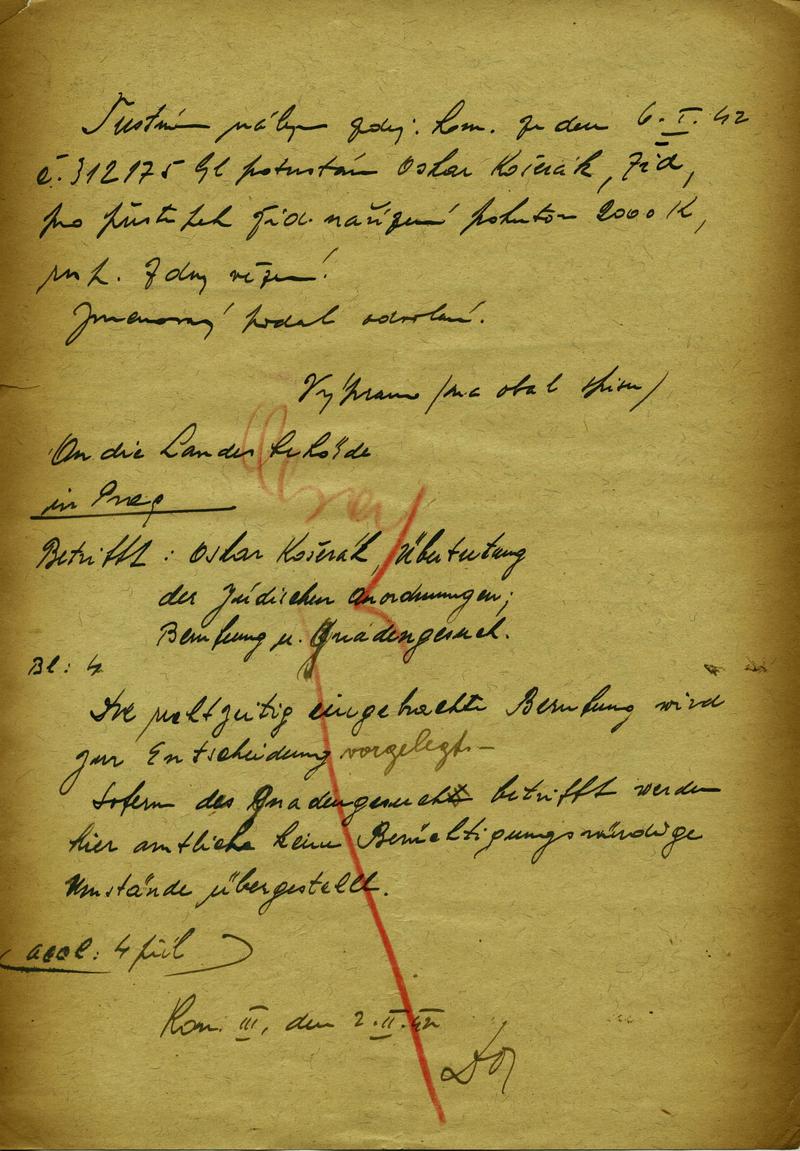 Trestním nálezem zdej. kom. ze dne 6.I.42
č. 312175 potrestán Oskar Košerák, Žid,
pro přestupek žid. nařízení pokutou 2000 K,
dny vězení.
Jmenovaný podal odvolání.
Výprava (na obal spisu)
An die Landesbehörde
in Prag
Betrifft: Oskar Košerák, Übertretung
der Jüdischen Anordnungen;
Berufung u. Gnadengesuch.
Bl: 4
Die rechtzeitig eingebrachte Berufung wird
zur Entscheidung vorgelegt.-
Sofern des Gnadengesuch betrifft werden
hier amtliche keine Berücktigungswürdige
Umstände übergestellt.
accl: 4 příl
Kom. III, den 2.II.42